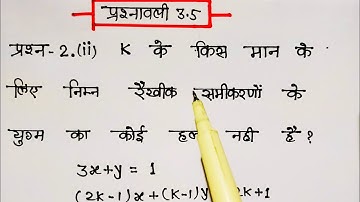 प्रश्नावली 3.5
प्रश्न-2.(ii) K के किस मान के
लिए निम्न रैखीक समीकरणों के
युग्म का कोई हल नही है?
3x+y = 1
(2K-1)x + (K-1)y 2K+1